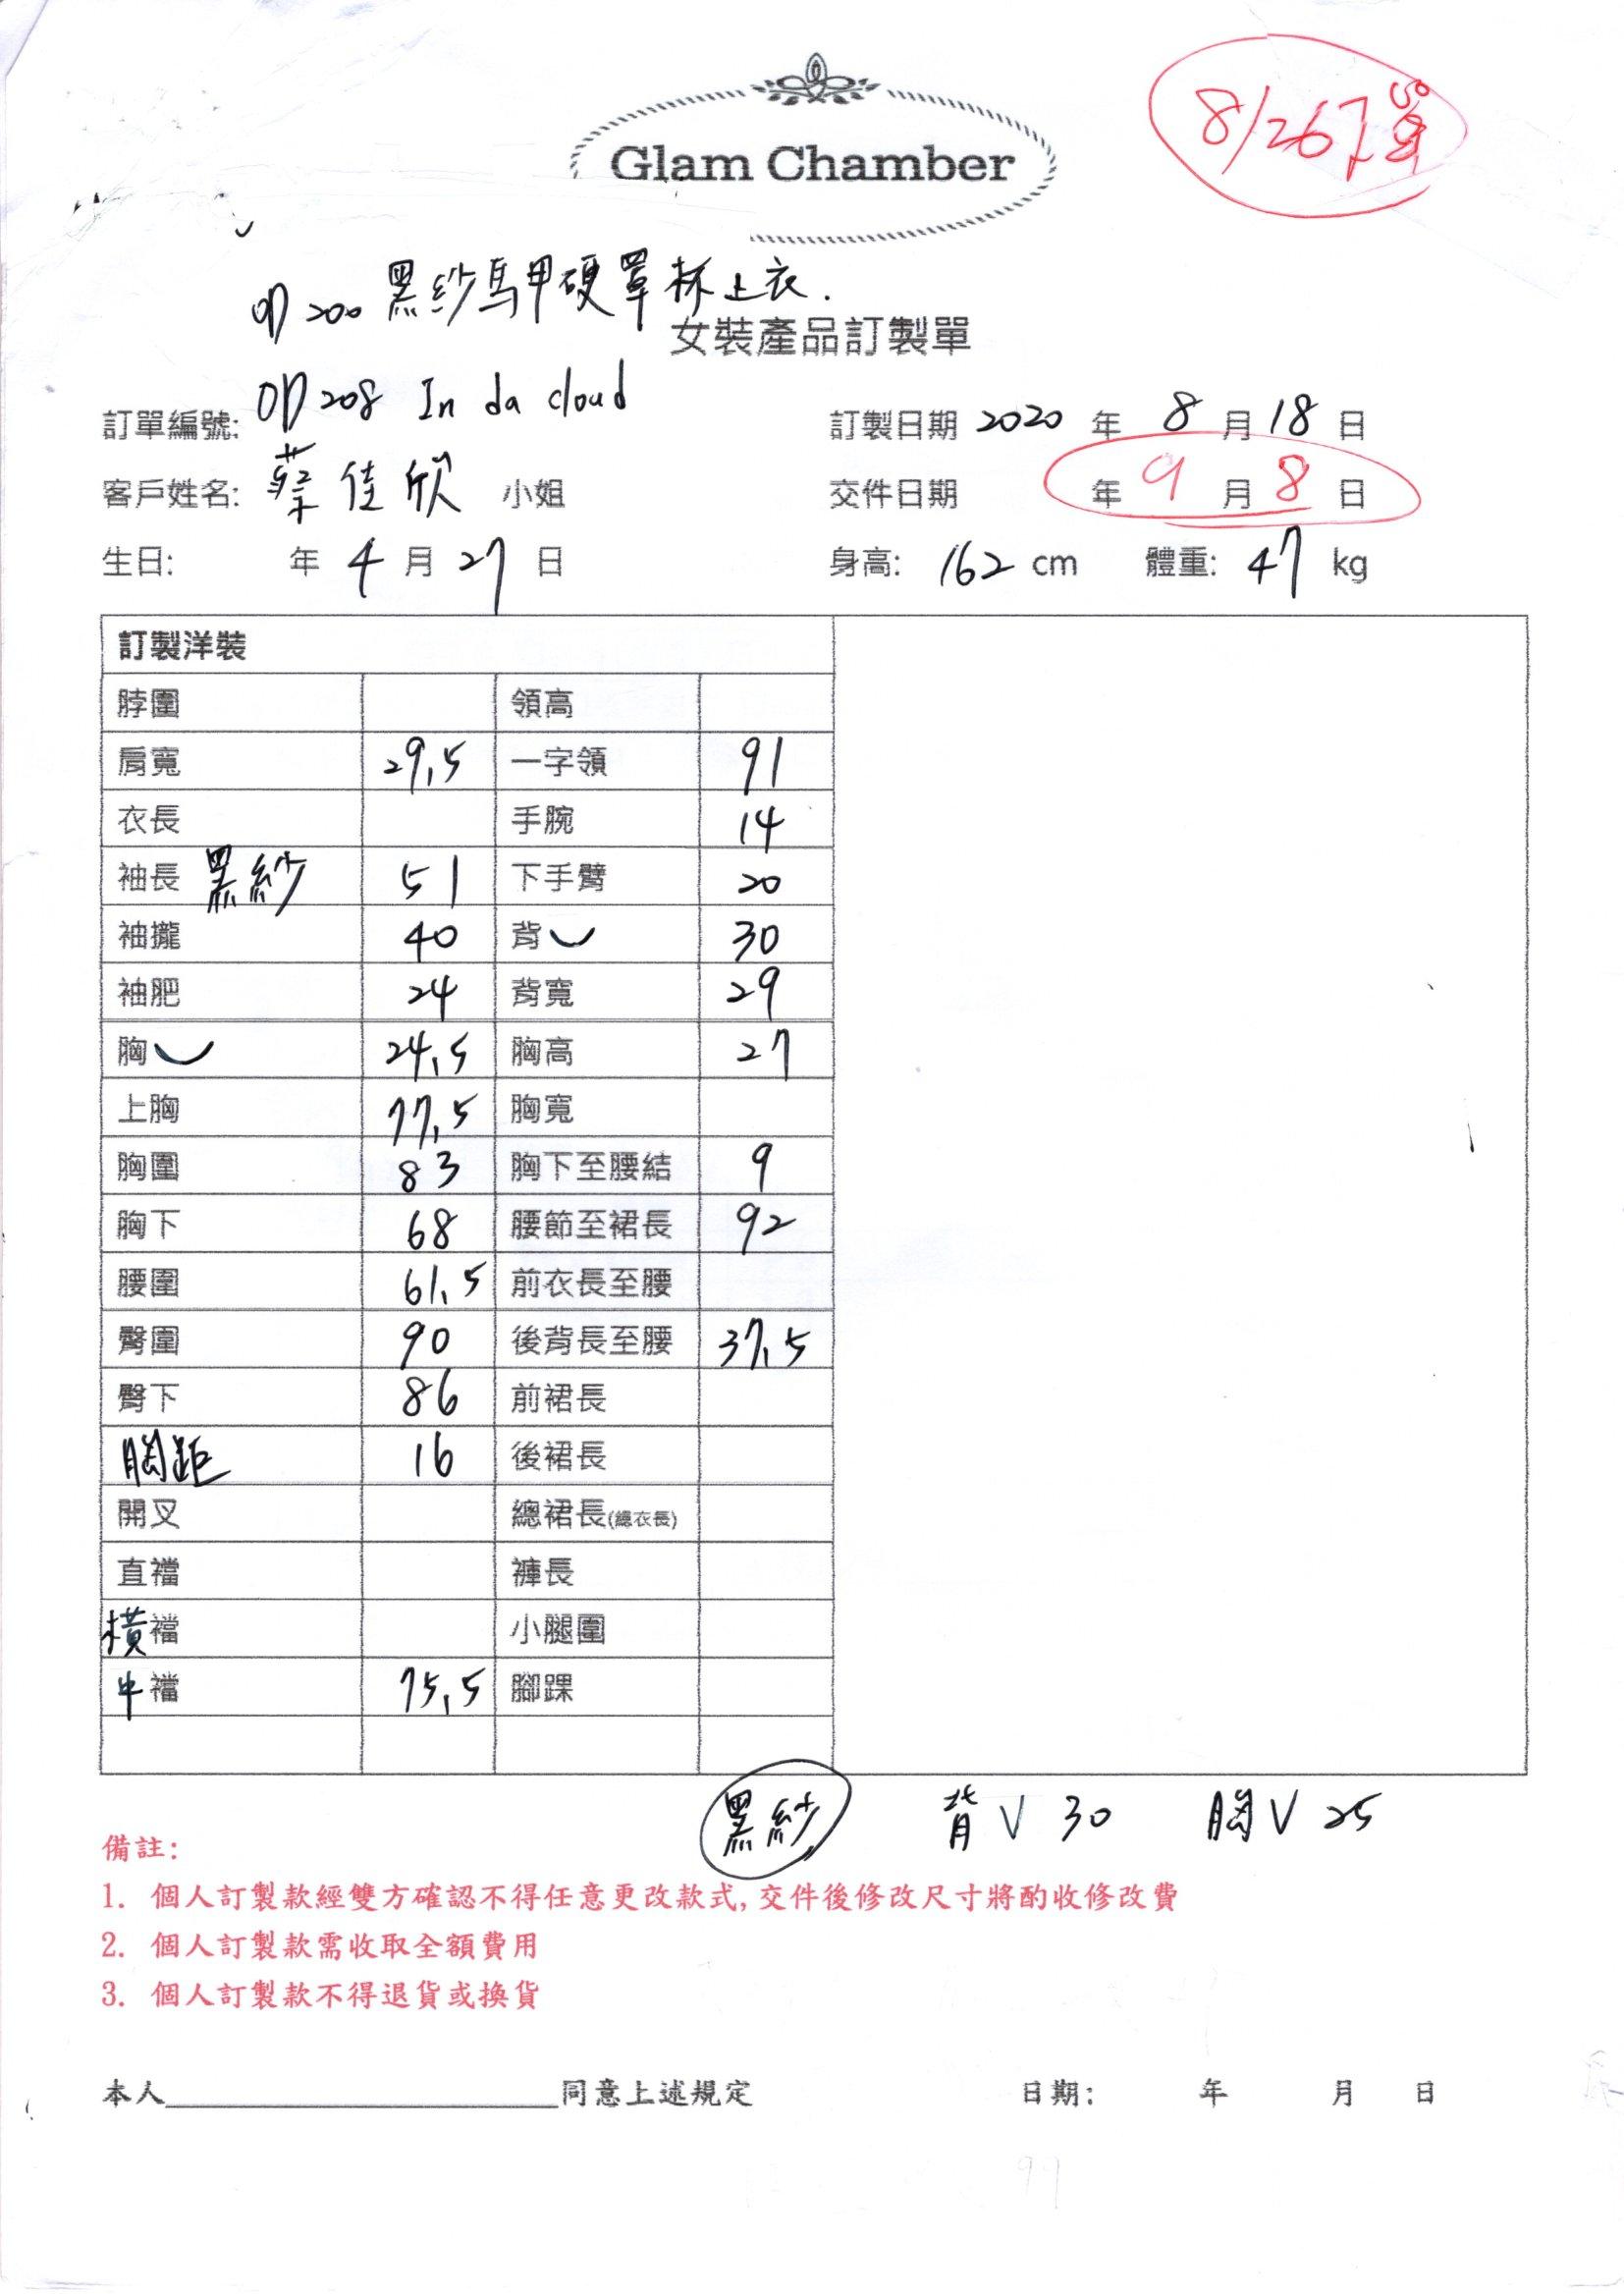 Glam Chamber
8/26
200 黑紗馬甲硬罩杯上衣.
女裝產品訂製單
訂單編號: 208 In da cloud 訂製日期 2020 年 8 月 18 日
客戶姓名: 蔡佳欣 小姐 交件日期 年 9 月 8 日
生日: 年 4 月 27 日 身高: 162 cm 體重: 47 kg
訂製洋裝
脖圍 領高
肩寬 29.5 一字領 91
衣長 手腕 14
袖長 黑紗 51 下手臂 20
袖攏 40 背 30
袖肥 24 背寬 29
胸 24.5 胸高 27
上胸 77.5 胸寬
胸圍 83 胸下至腰結 9
胸下 68 腰節至裙長 92
腰圍 61.5 前衣長至腰
臀圍 90 後背長至腰 37.5
臀下 86 前裙長
胸距 16 後裙長
開叉 總裙長(總衣長)
直襠 褲長
橫襠 小腿圍
牛襠 75.5 腳踝
黑紗 背V 30 胸V 25
備註:
1. 個人訂製款經雙方確認不得任意更改款式, 交件後修改尺寸將酌收修改費
2. 個人訂製款需收取全額費用
3. 個人訂製款不得退貨或換貨
本人 同意上述規定 日期: 年 月 日